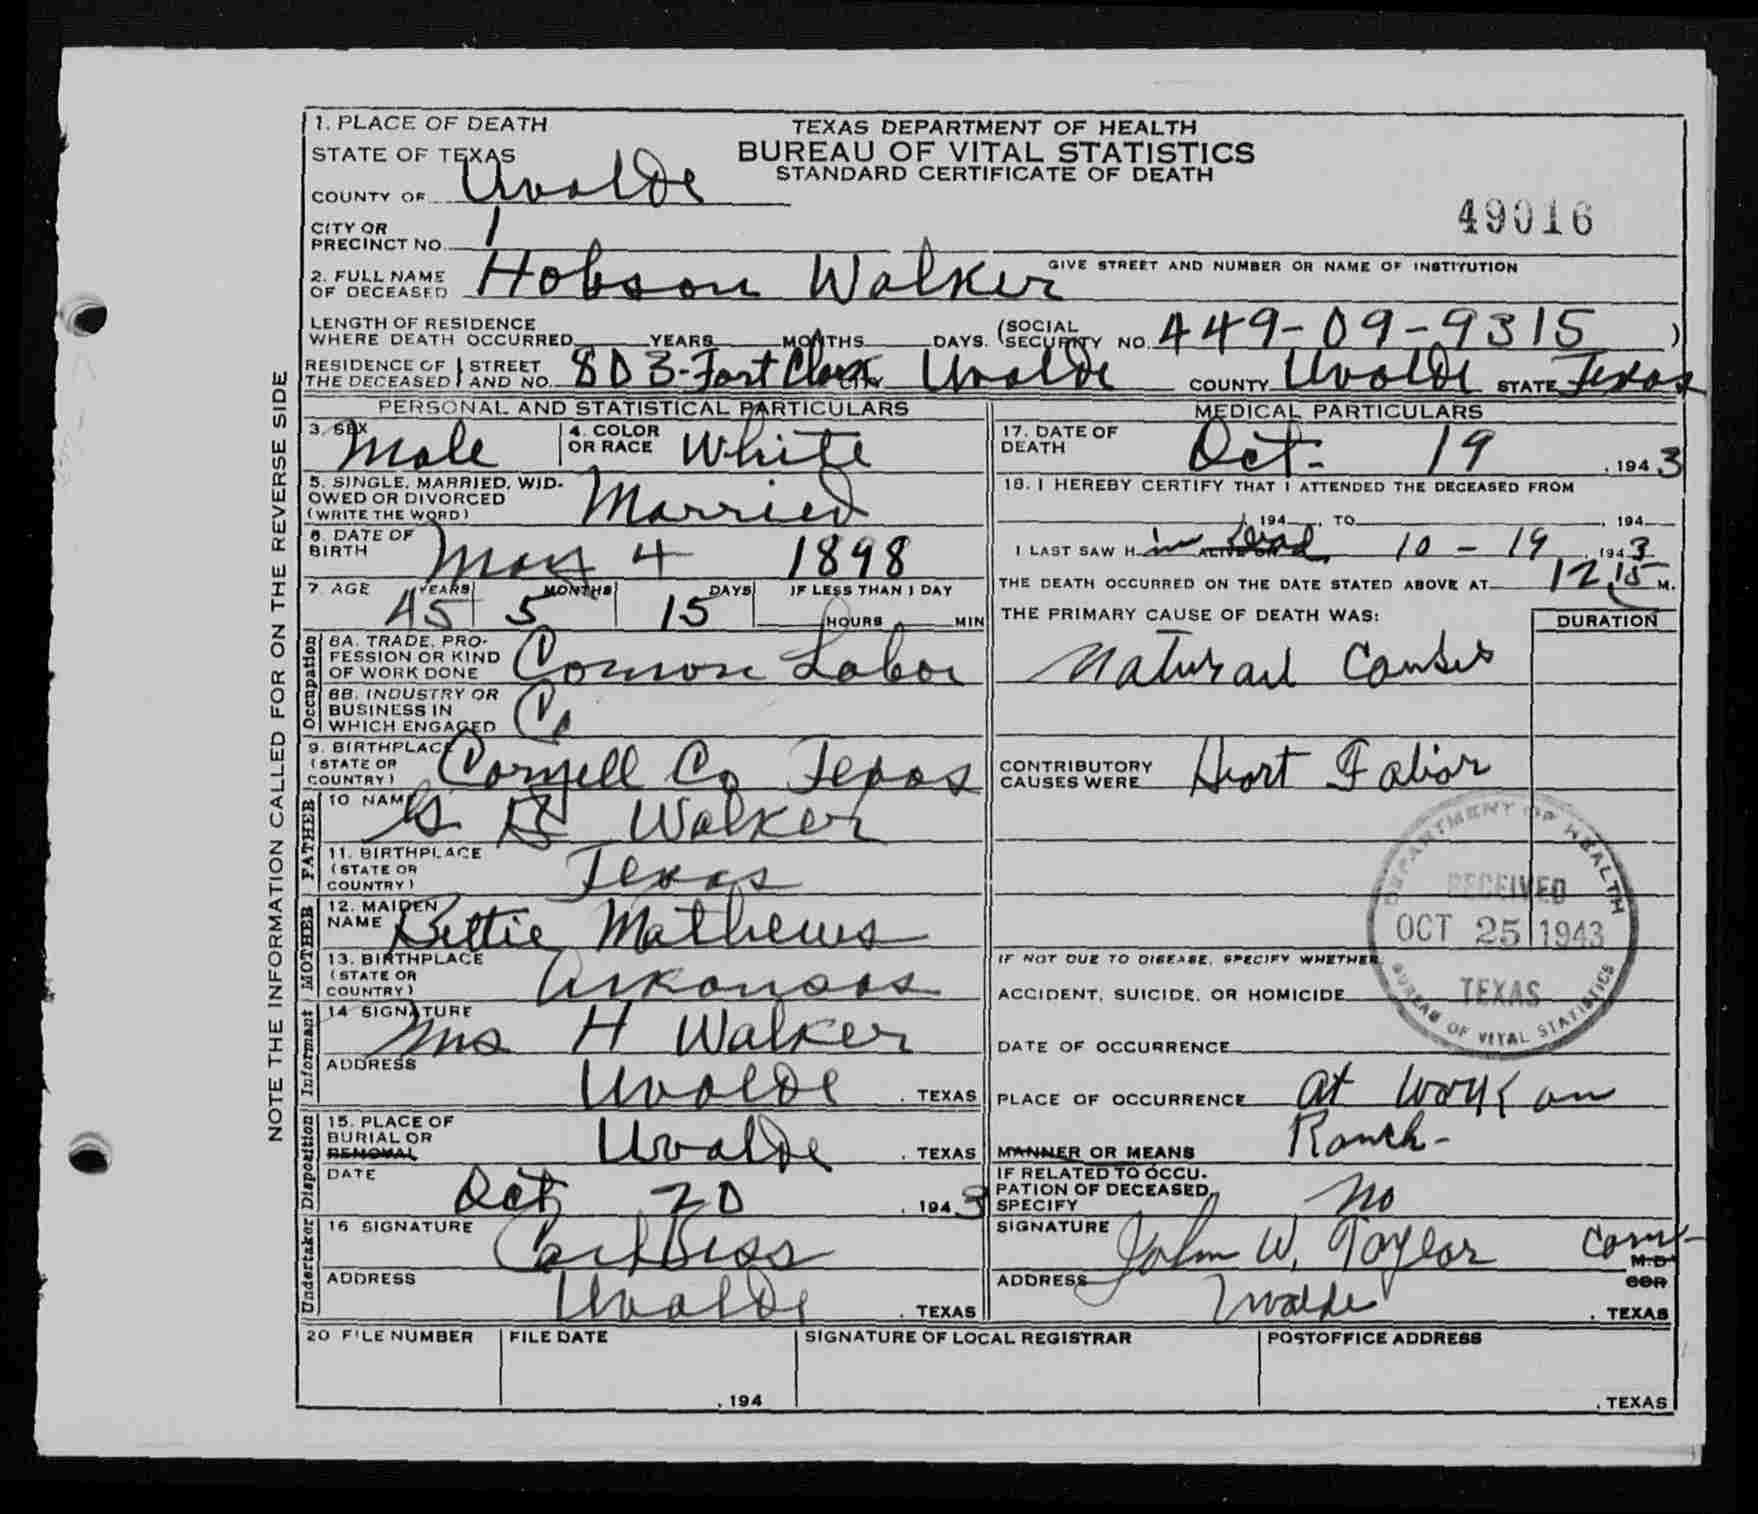 1. PLACE OF DEATH
STATE OF TEXAS
COUNTY OF Uvalde
CITY OR
PRECINCT NO. 1
TEXAS DEPARTMENT OF HEALTH
BUREAU OF VITAL STATISTICS
STANDARD CERTIFICATE OF DEATH
49016
GIVE STREET AND NUMBER OR NAME OF INSTITUTION
2. FULL NAME
OF DECEASED Hobson Walker
LENGTH OF RESIDENCE
WHERE DEATH OCCURRED YEARS MONTHS DAYS. (SOCIAL
SECURITY NO. 449-09-9315 )
RESIDENCE OF THE DECEASED STREET AND NO. 803-Fort Clark CITY Uvalde COUNTY Uvalde STATE Texas
NOTE THE INFORMATION CALLED FOR ON THE REVERSE SIDE
PERSONAL AND STATISTICAL PARTICULARS
3. SEX Male 4. COLOR OR RACE White
5. SINGLE, MARRIED, WID-
OWED OR DIVORCED
(WRITE THE WORD) Married
6. DATE OF
BIRTH May 4 1898
7. AGE YEARS MONTHS DAYS IF LESS THAN 1 DAY
45 5 15 HOURS MIN
Occupation
8A. TRADE, PRO-
FESSION OR KIND
OF WORK DONE Comon Labor
8B. INDUSTRY OR
BUSINESS IN
WHICH ENGAGED
9. BIRTHPLACE
(STATE OR
COUNTRY) Coryell Co Texas
FATHER
10 NAME Walker
11. BIRTHPLACE
(STATE OR
COUNTRY) Texas
MOTHER
12. MAIDEN
NAME Bettie Mathews
13. BIRTHPLACE
(STATE OR
COUNTRY) Arkansas
Informant
14 SIGNATURE Mrs H Walker
ADDRESS Uvalde , TEXAS
Disposition
15. PLACE OF
BURIAL OR
REMOVAL Uvalde , TEXAS
DATE Oct 20 , 1943
Undertaker
16 SIGNATURE
ADDRESS Uvalde , TEXAS
MEDICAL PARTICULARS
17. DATE OF
DEATH Oct. 19 , 1943
18. I HEREBY CERTIFY THAT I ATTENDED THE DECEASED FROM
, 194 , TO , 194
I LAST SAW H im ALIVE ON Dead 10-19 , 1943
THE DEATH OCCURRED ON THE DATE STATED ABOVE AT 12,15 M.
THE PRIMARY CAUSE OF DEATH WAS: DURATION
Natural Causes
CONTRIBUTORY
CAUSES WERE Heart Falior
DEPARTMENT OF HEALTH
RECEIVED
OCT 25 1943
TEXAS
BUREAU OF VITAL STATISTICS
IF NOT DUE TO DISEASE, SPECIFY WHETHER
ACCIDENT, SUICIDE, OR HOMICIDE
DATE OF OCCURRENCE
PLACE OF OCCURRENCE at work on
MANNER OR MEANS Ranch-
IF RELATED TO OCCU-
PATION OF DECEASED,
SPECIFY No
SIGNATURE John W. Taylor
M.D.
COR
ADDRESS Uvalde , TEXAS
20 FILE NUMBER FILE DATE SIGNATURE OF LOCAL REGISTRAR POSTOFFICE ADDRESS
, 194 , TEXAS